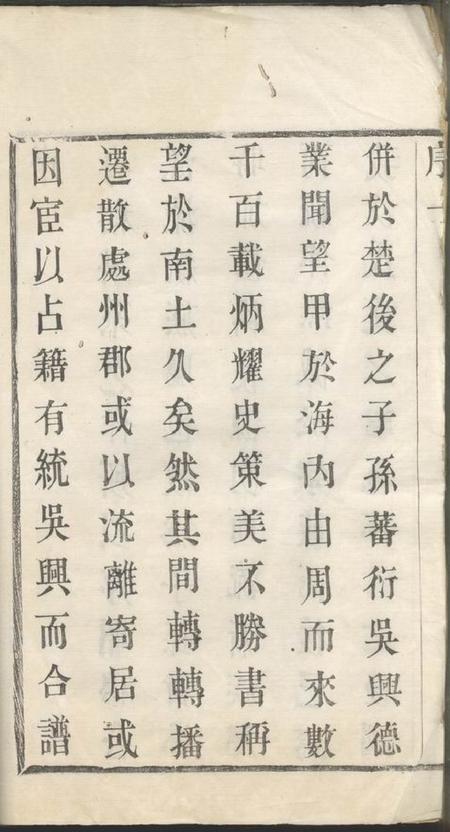 併於楚後之子孫蕃衍吳興德
業聞望甲於海內由周而來數
千百載炳耀史策美不勝書稱
望於南土久矣然其間轉轉播
遷散處州郡或以流離寄居或
因宦以占籍有統吳興而合譜